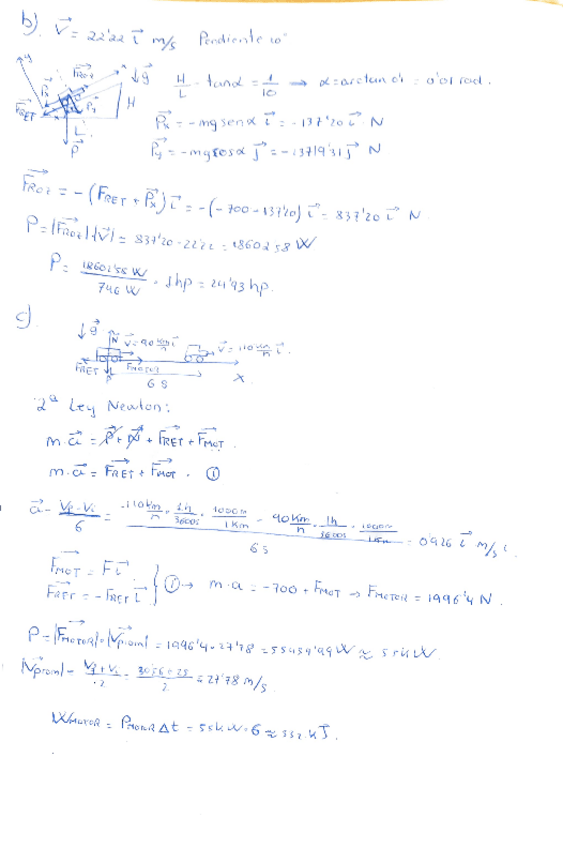 b). V = 22'22 i m/s Pendiente 10°
H/L = tanα = 1/10 → α = arctan 0'1 = 0'01 rad.
Px = -mg senα i = -137'20 i N
Py = -mg cosα j = -13719'31 j N
y x FROZ g Px Py H FRET L P
FROZ = -(FRET + Px) i = -(-700 - 137'20) i = 837'20 i N
P = |FROZ|·|V| = 837'20 · 22'22 = 18602'58 W
P = 18602'58 W / 746 W · 1hp = 24'93 hp.
c).
g N V = 90 Km/h i V = 110 Km/h i.
FRET P FMOTOR X
6 s
2ª Ley Newton:
m·a = P + N + FRET + FMOT.
m·a = FRET + FMOT. ①
a = Vf - Vi / 6 = 110 Km/h · 1h/3600s · 1000m/1Km - 90 Km/h · 1h/3600s · 1000m/1Km / 6 s = 0'926 i m/s
FMOT = F i
FRET = -FRET i } ① → m·a = -700 + FMOT → FMOTOR = 1996'4 N.
P = |FMOTOR|·|Vprom| = 1996'4 · 27'78 = 55459'99 W ≈ 55 kW.
|Vprom| = Vf + Vi / 2 = 30'56 + 25 / 2 = 27'78 m/s.
WMOTOR = PMOTOR Δt = 55 kW · 6 ≈ 332 kJ.